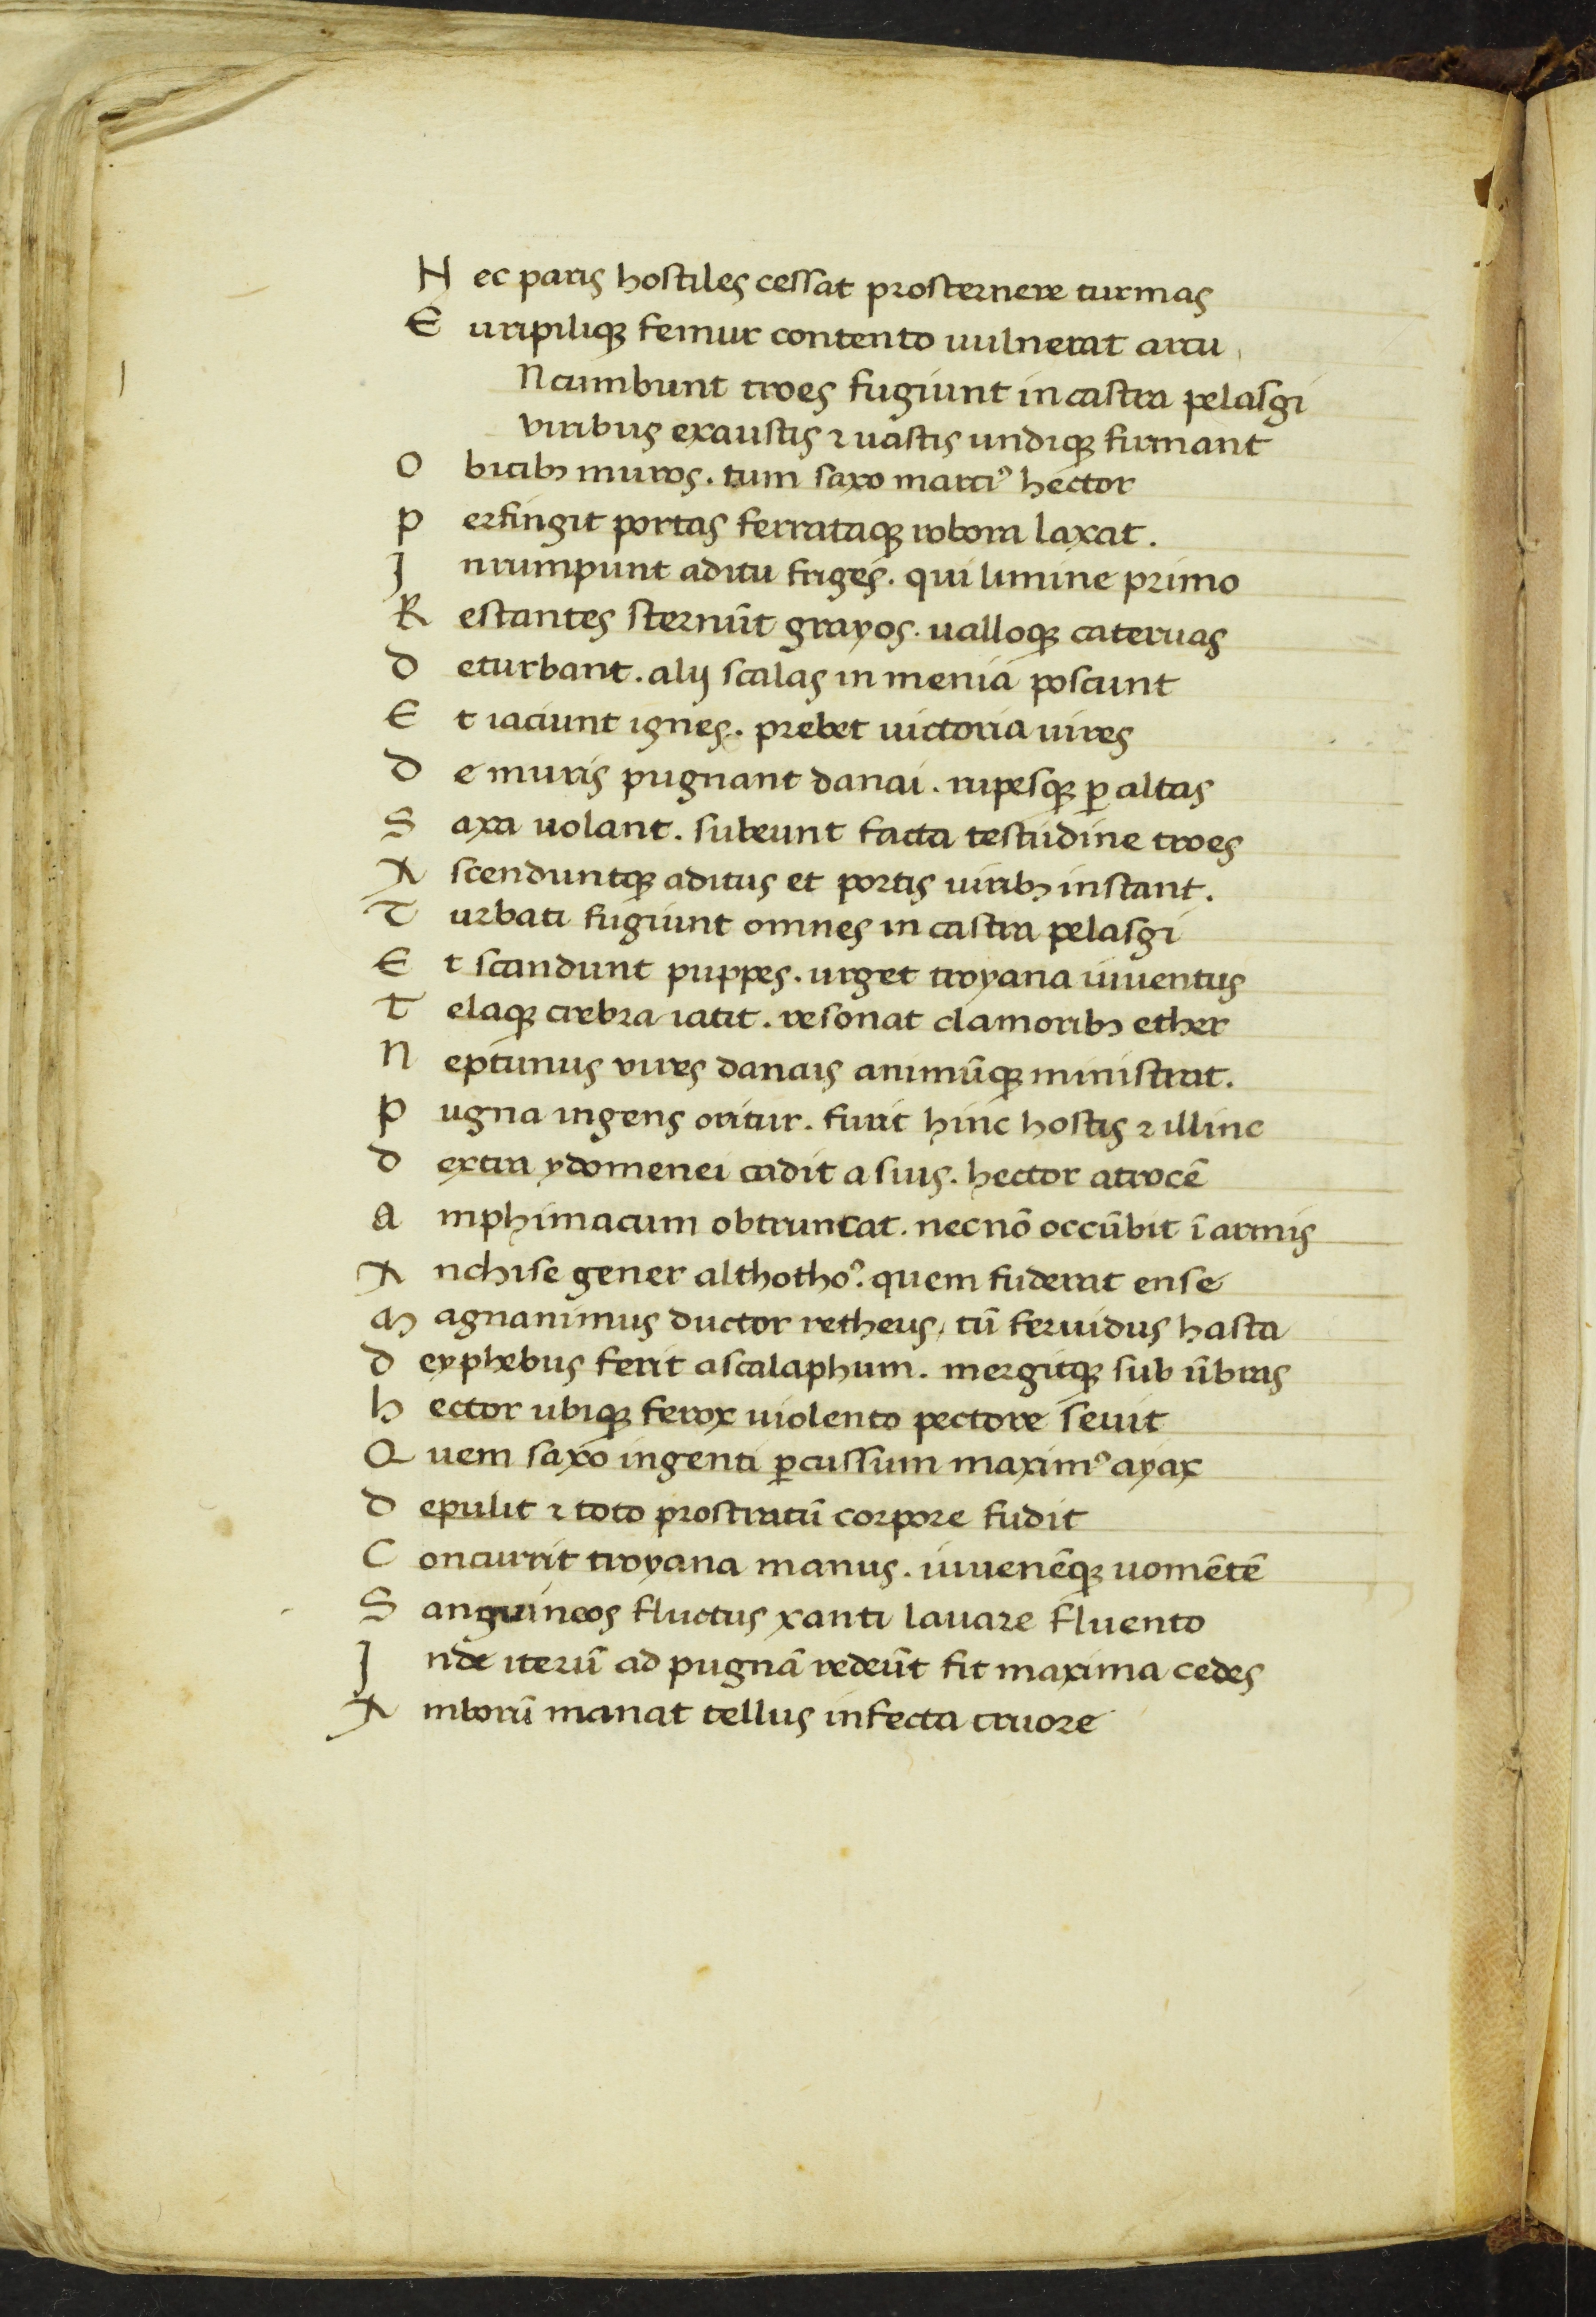 N ec paris hostiles cessat prosternere turmas
E uripiliqꝫ femur contento uulnerat arcu
Ncumbunt troes fugiunt in castra pelasgi
viribus exaustis ⁊ uastis undiqꝫ firmant
O bicibꝫ muros. tum saxo marciꝰ hector
p erfingit portas ferrataqꝫ robora laxat.
J nrumpunt aditu friges. qui limine primo
R estantes sternūt grayos. ualloqꝫ cateruas
d eturbant. alij scalas in menia poscunt
E t iaciunt ignes. prebet uictoria uires
d e muris pugnant danai. rupesqꝫ ꝑ altas
S axa uolant. subeunt facta testudine troes
A scenduntqꝫ aditus et portis uiribꝫ instant.
T urbati fugiunt omnes in castra pelasgi
E t scandunt puppes. urget troyana iuuentus
T elaqꝫ crebra iacit. resonat clamoribꝫ ether
N eptunus vires danais animūqꝫ ministrat.
p ugna ingens oritur. furit hinc hostis ⁊ illinc
d extra ydomenei cadit asius. hector atrocē
a mphimacum obtruncat. necnō occūbit ī armis
A nchise gener althothoꝰ. quem fuderat ense
M agnanimus ductor retheus, tū feruidus hasta
d eyphebus ferit ascalaphum. mergitqꝫ sub ūbras
h ector ubiqꝫ ferox uiolento pectore seuit
Q uem saxo ingenti ꝑcussum maximꝰ ayax
d epulit ⁊ toto prostratū corpore fudit
C oncurrit troyana manus. iuuenēqꝫ uomētē
S anguineos fluctus xanti lauare fluento
J nde iterū ad pugnā redeūt fit maxima cedes
A mborū manat tellus infecta cruore